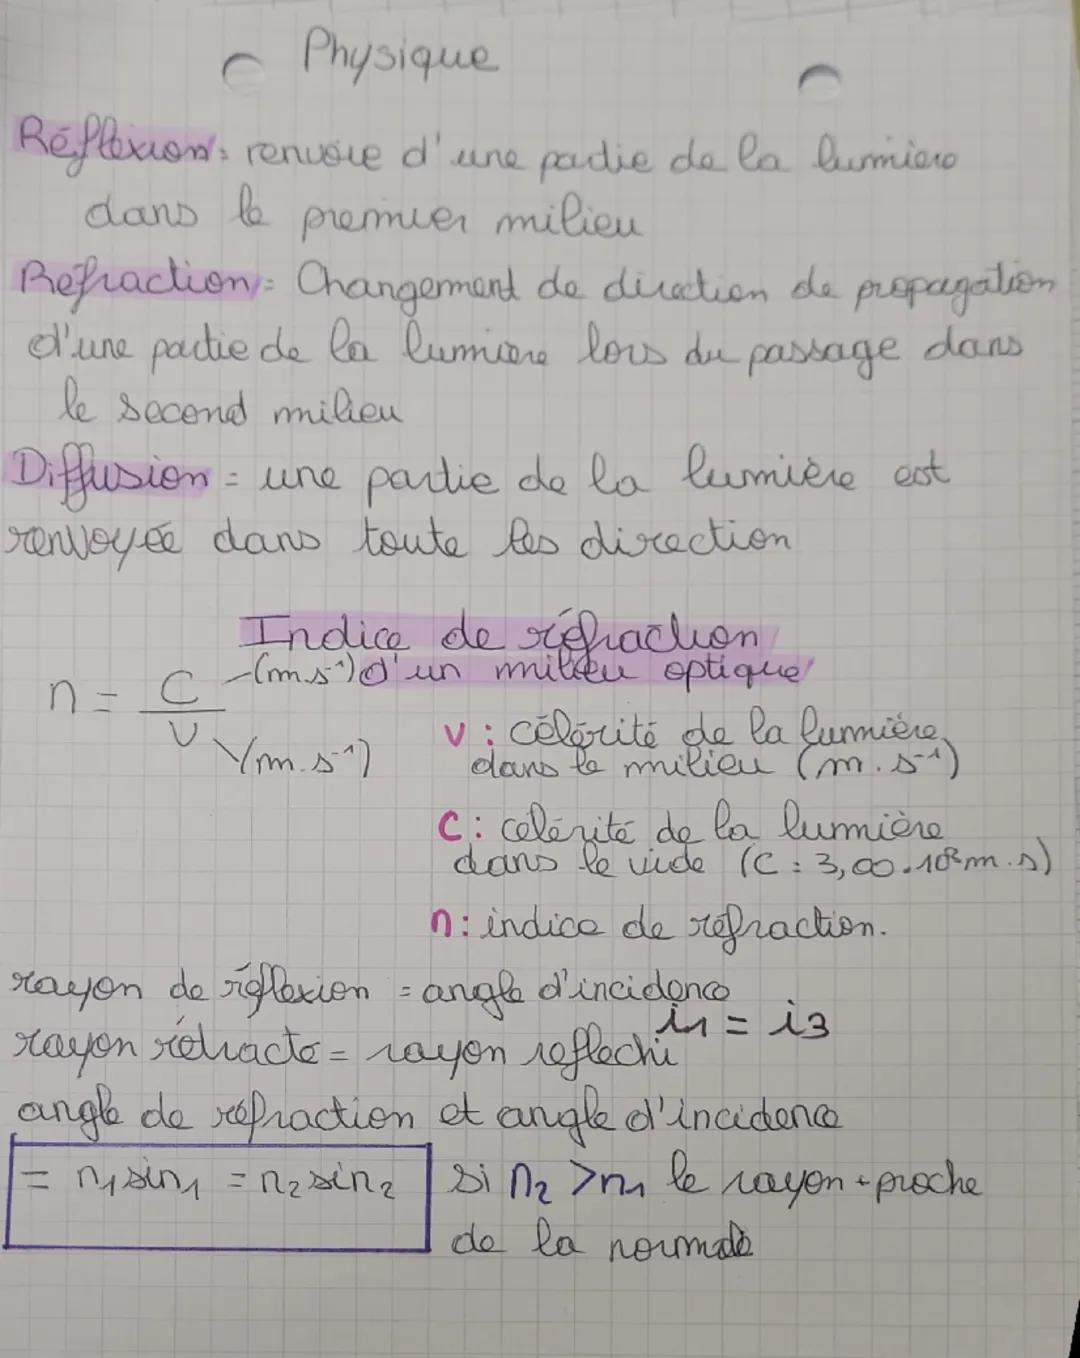 Physique
Réflexion: renvoie d'une partie de la lumière
dans le premier milieu
Réfraction: Changement de direction de propagation
d'une partie de la lumière lors du passage dans
le second milieu
Diffusion = une partie de la lumière est
renvoyée dans toute les direction
Indice de réfraction
d'un milieu optique
n = C/V (m.s⁻¹)
(m.s⁻¹)
v : célérité de la lumière
dans le milieu (m.s⁻¹)
C : célérité de la lumière
dans le vide (C = 3,00.10⁸ m.s)
n : indice de réfraction.
rayon de réflexion = angle d'incidence
i1 = i3
rayon rétracté = rayon reflechi
angle de réfraction et angle d'incidence
= n1 sin1 = n2 sin2
si n2 > n1 le rayon + proche
de la normale